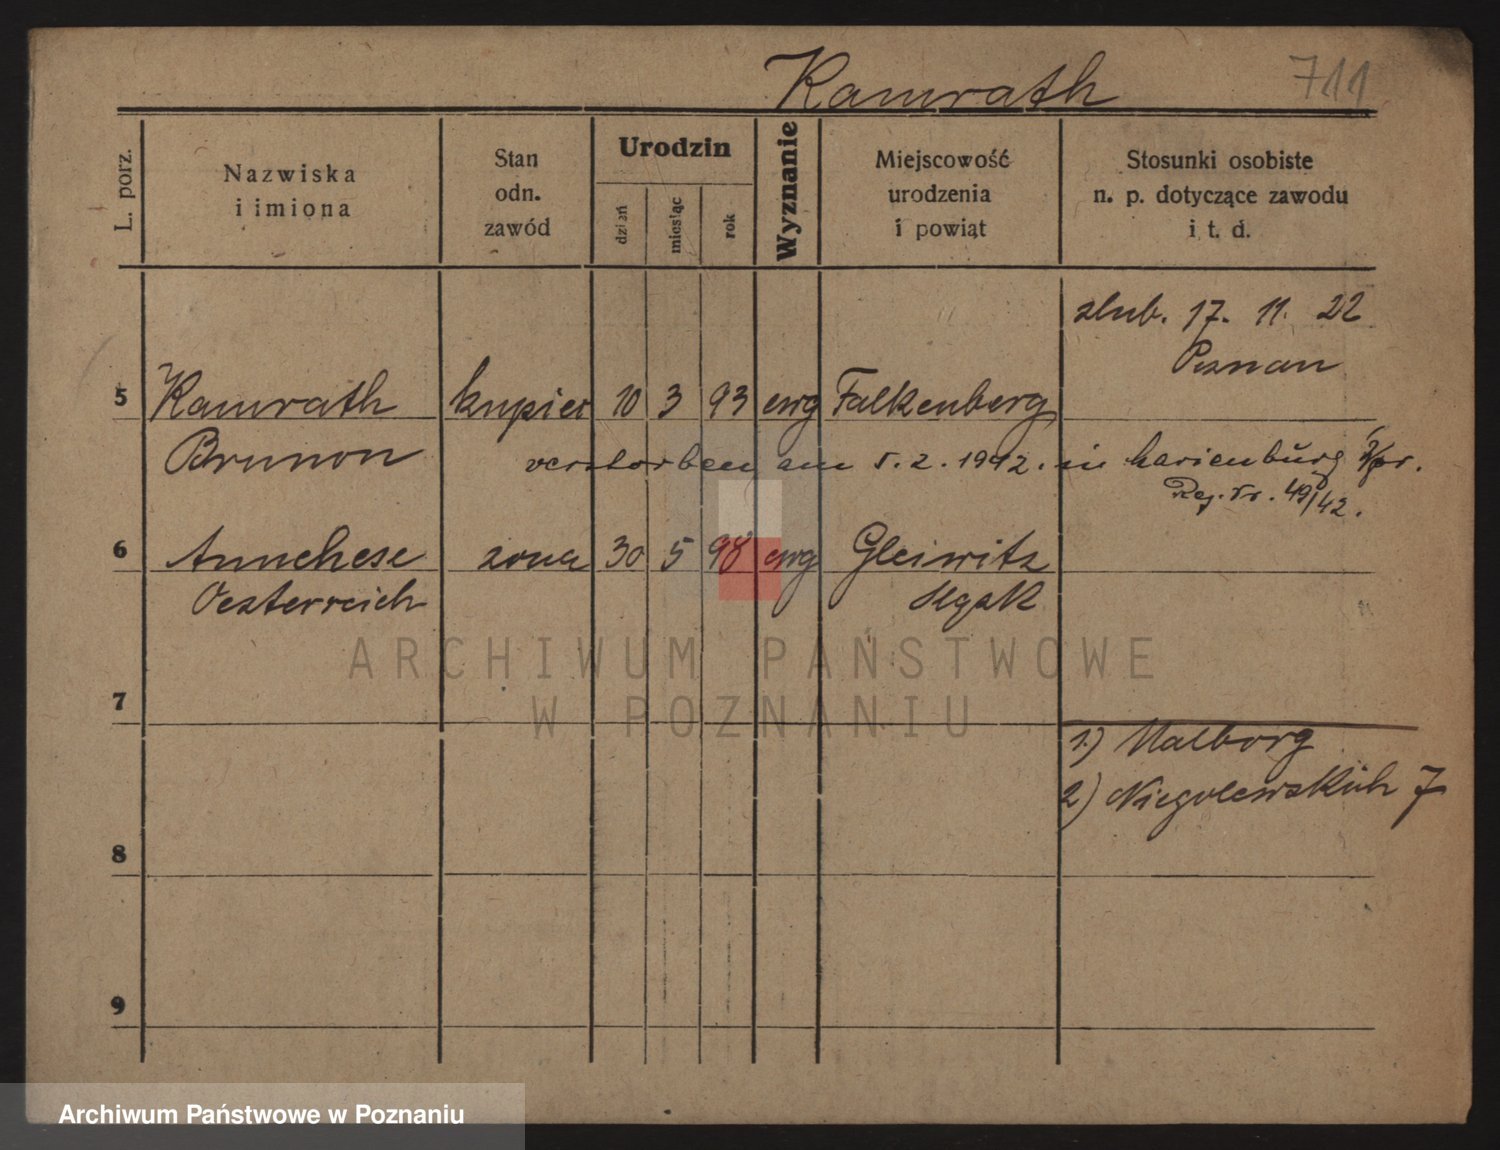 Kamrath 711
L. porz.
Nazwiska
i imiona
Stan
odn.
zawód
Urodzin
dzień
miesiąc
rok
Wyznanie
Miejscowość
urodzenia
i powiąt
Stosunki osobiste
n. p. dotyczące zawodu
i t. d.
slub. 17. 11. 22
Poznan
5 Kamrath kupiec 10 3 93 ewg Falkenberg
Brunon
verstorben am 5. 2. 1942. in Marienburg Wpr.
Reg. Nr. 49/42.
6 Anneliese zona 30 5 98 ewg Gleiwitz
Oesterreich
7
1) Malborg
2) Niegolewskich 7
8
9
ARCHIWUM PAŃSTWOWE
W POZNANIU
Archiwum Państwowe w Poznaniu